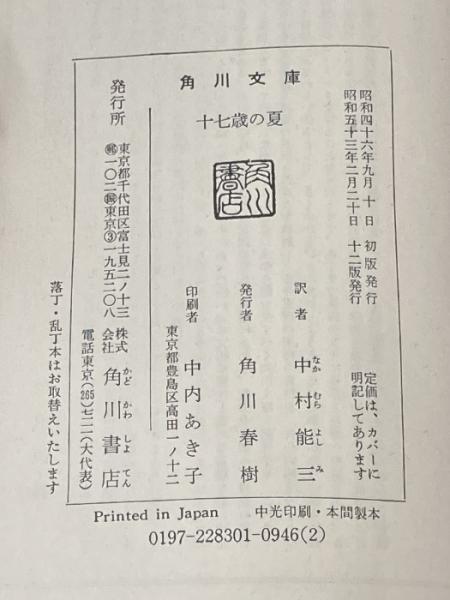 角川文庫
十七歳の夏
昭和四十六年九月十日 初版発行
昭和五十三年二月二十日 十二版発行
定価は、カバーに
明記してあります
訳者 中村能三
なか むら よし み
発行者 角川春樹
印刷者 中内あき子
東京都豊島区高田一ノ十二
角川書店
発行所
東京都千代田区富士見二ノ十三
〒一〇二 振東京③一九五二〇八
株式会社 角川書店
かど かわ しょ てん
電話東京(265)七一一一(大代表)
落丁・乱丁本はお取替えいたします
Printed in Japan 中光印刷・本間製本
0197-228301-0946(2)